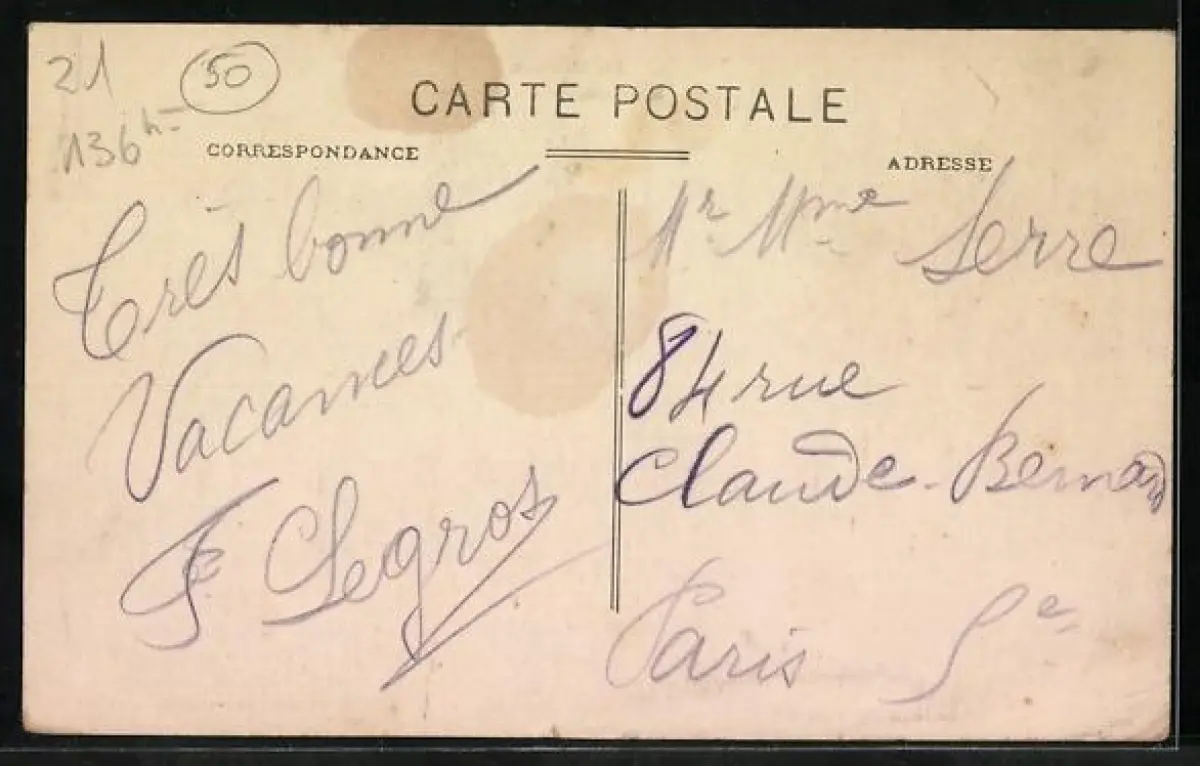 21
50
136
CARTE POSTALE
CORRESPONDANCE
ADRESSE
Très bonne
Vacances
F Legros
Mr Mme Serre
84 rue
Claude-Bernard
Paris 5e